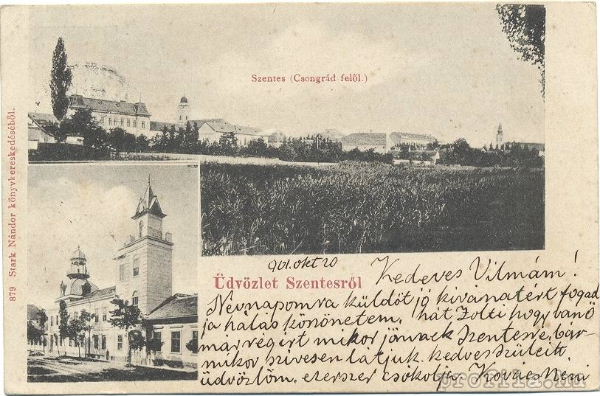 Szentes (Csongrád felől.)
879 Stark Nándor könyvkereskedéséből.
Üdvözlet Szentesről
901. okt 20
Kedves Vilmám!
Nevnapomra küldöt jó kivanatért fogad
ja hálás köszönetem, hát Zolti hogy
már végért mikor jönnek Szentesre, bar
mikor szivesen látjuk kedves szüleit
üdvözlöm, ezerszer csókolja Kovács Neni
profila.hu